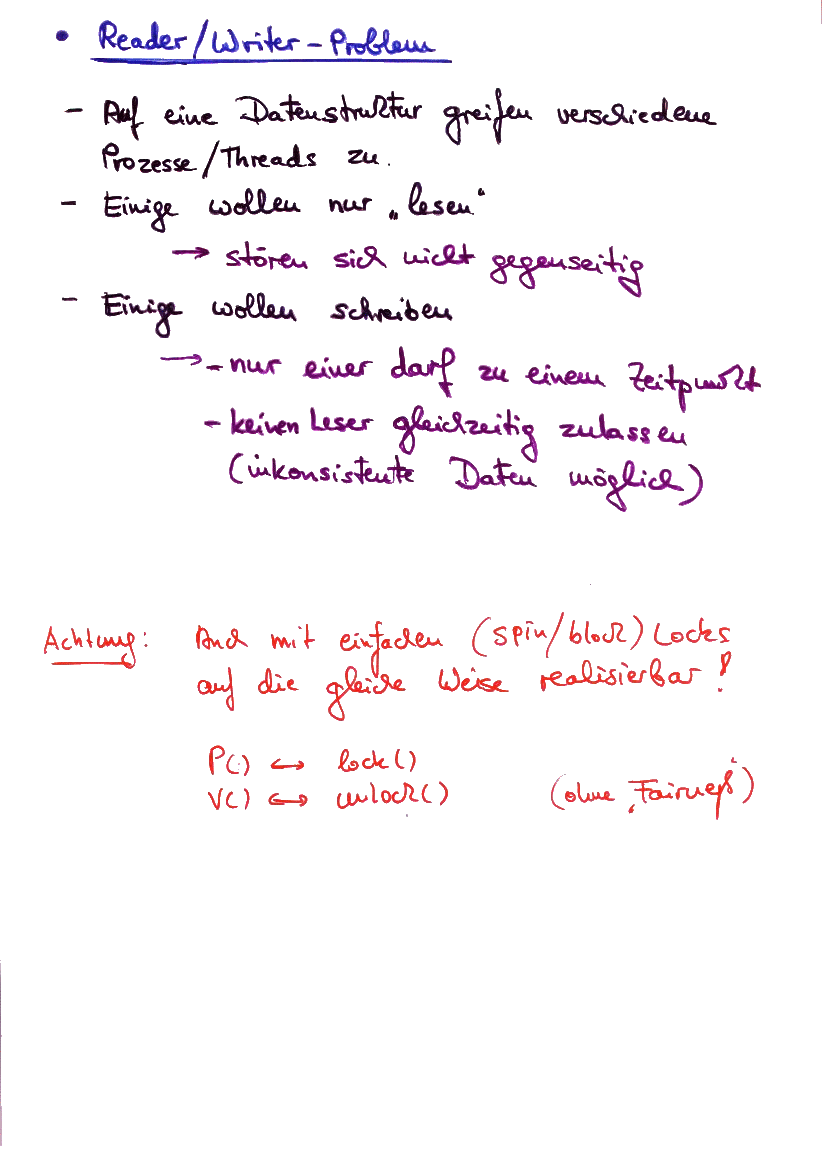 • Reader/Writer-Problem
- Auf eine Datenstruktur greifen verschiedene
Prozesse/Threads zu.
- Einige wollen nur „lesen“
→ stören sich nicht gegenseitig
- Einige wollen schreiben
→ - nur einer darf zu einem Zeitpunkt
- keinen Leser gleichzeitig zulassen
(inkonsistente Daten möglich)
Achtung: Auch mit einfachen (spin/block) Locks
auf die gleiche Weise realisierbar!
P() ↔ lock()
V() ↔ unlock() (ohne „Fairneß“)